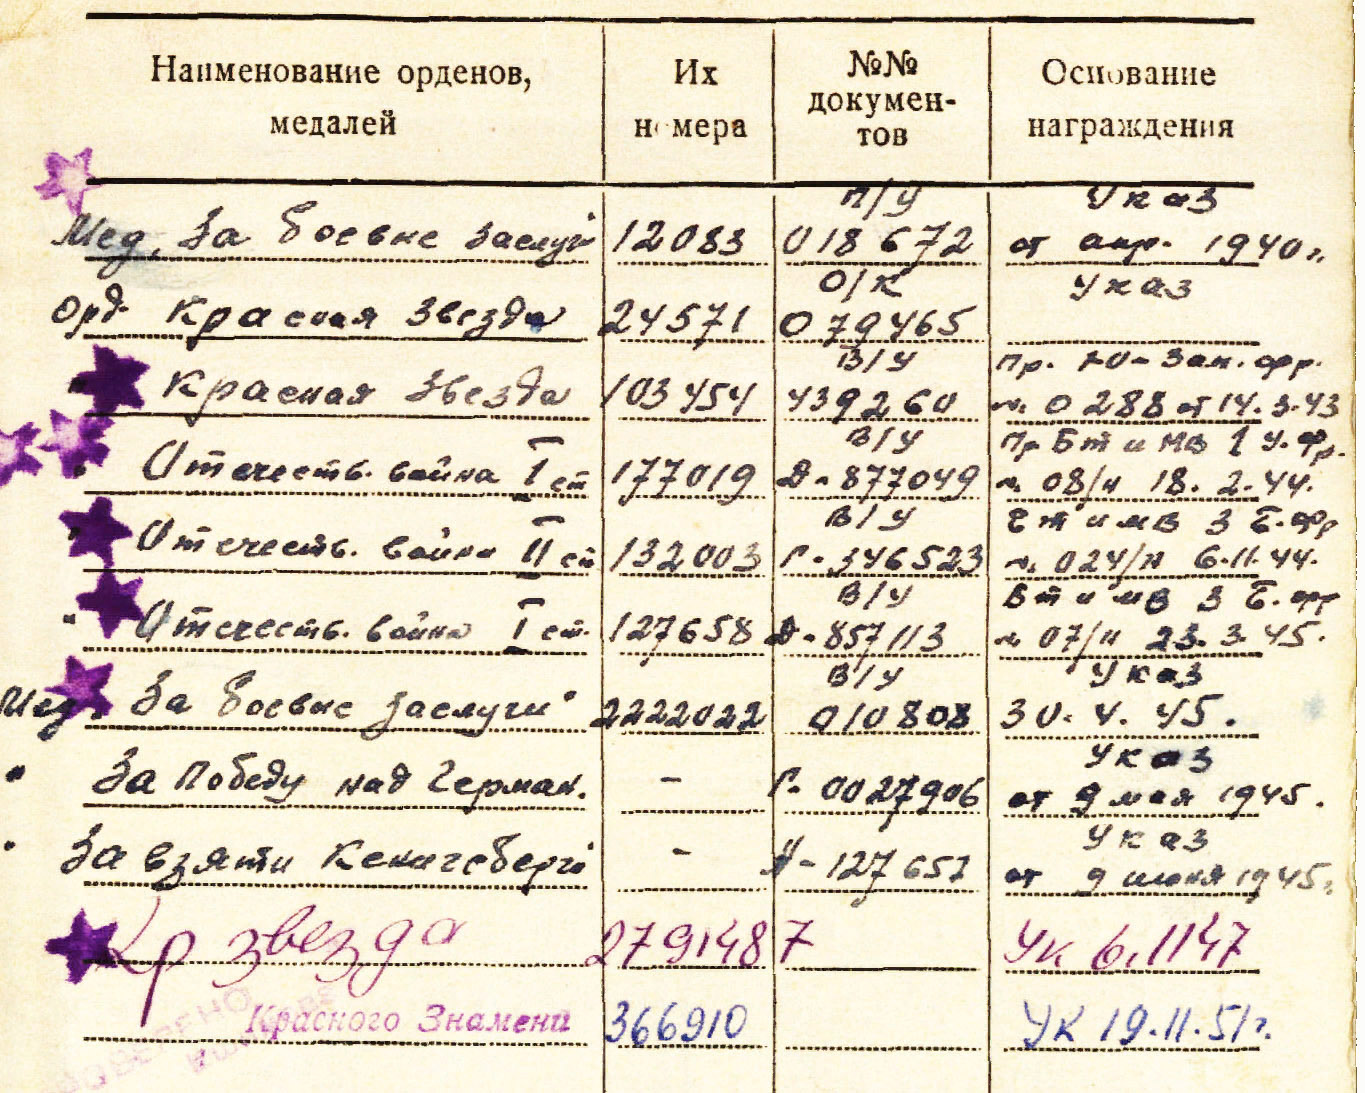 Наименование орденов, медалей Их номера №№ документов Основание награждения
П/У Указ
Мед. За боевые заслуги 12083 018672 от апр. 1940 г.
О/К Указ
Орд. Красная Звезда 24571 079465
В/У Пр. Ю-Зап. фр.
" Красная Звезда 103454 439260 н. 0288 от 14.3.43
В/У Пр Бт и МВ 1 У. Фр.
" Отечеств. война I ст 177019 Д-877049 н. 08/н 18.2.44.
В/У Бт и МВ 3 Б. фр
" Отечеств. война II ст 132003 Г-346523 н. 024/н 6.11.44.
В/У Бт и МВ 3 Б. фр
" Отечеств. война I ст. 127658 Д-857113 н 07/н 23.3.45.
В/У Указ
Мед. За боевые заслуги 2222022 010808 30.4.45.
Указ
" За Победу над Герман. - Г-0027906 от 9 мая 1945.
Указ
" За взяти Кенигсберг - А-127657 от 9 июня 1945 г.
Кр звезда 2791487 Ук 6.1147
Красного Знамени 366910 УК 19.11.51 г.